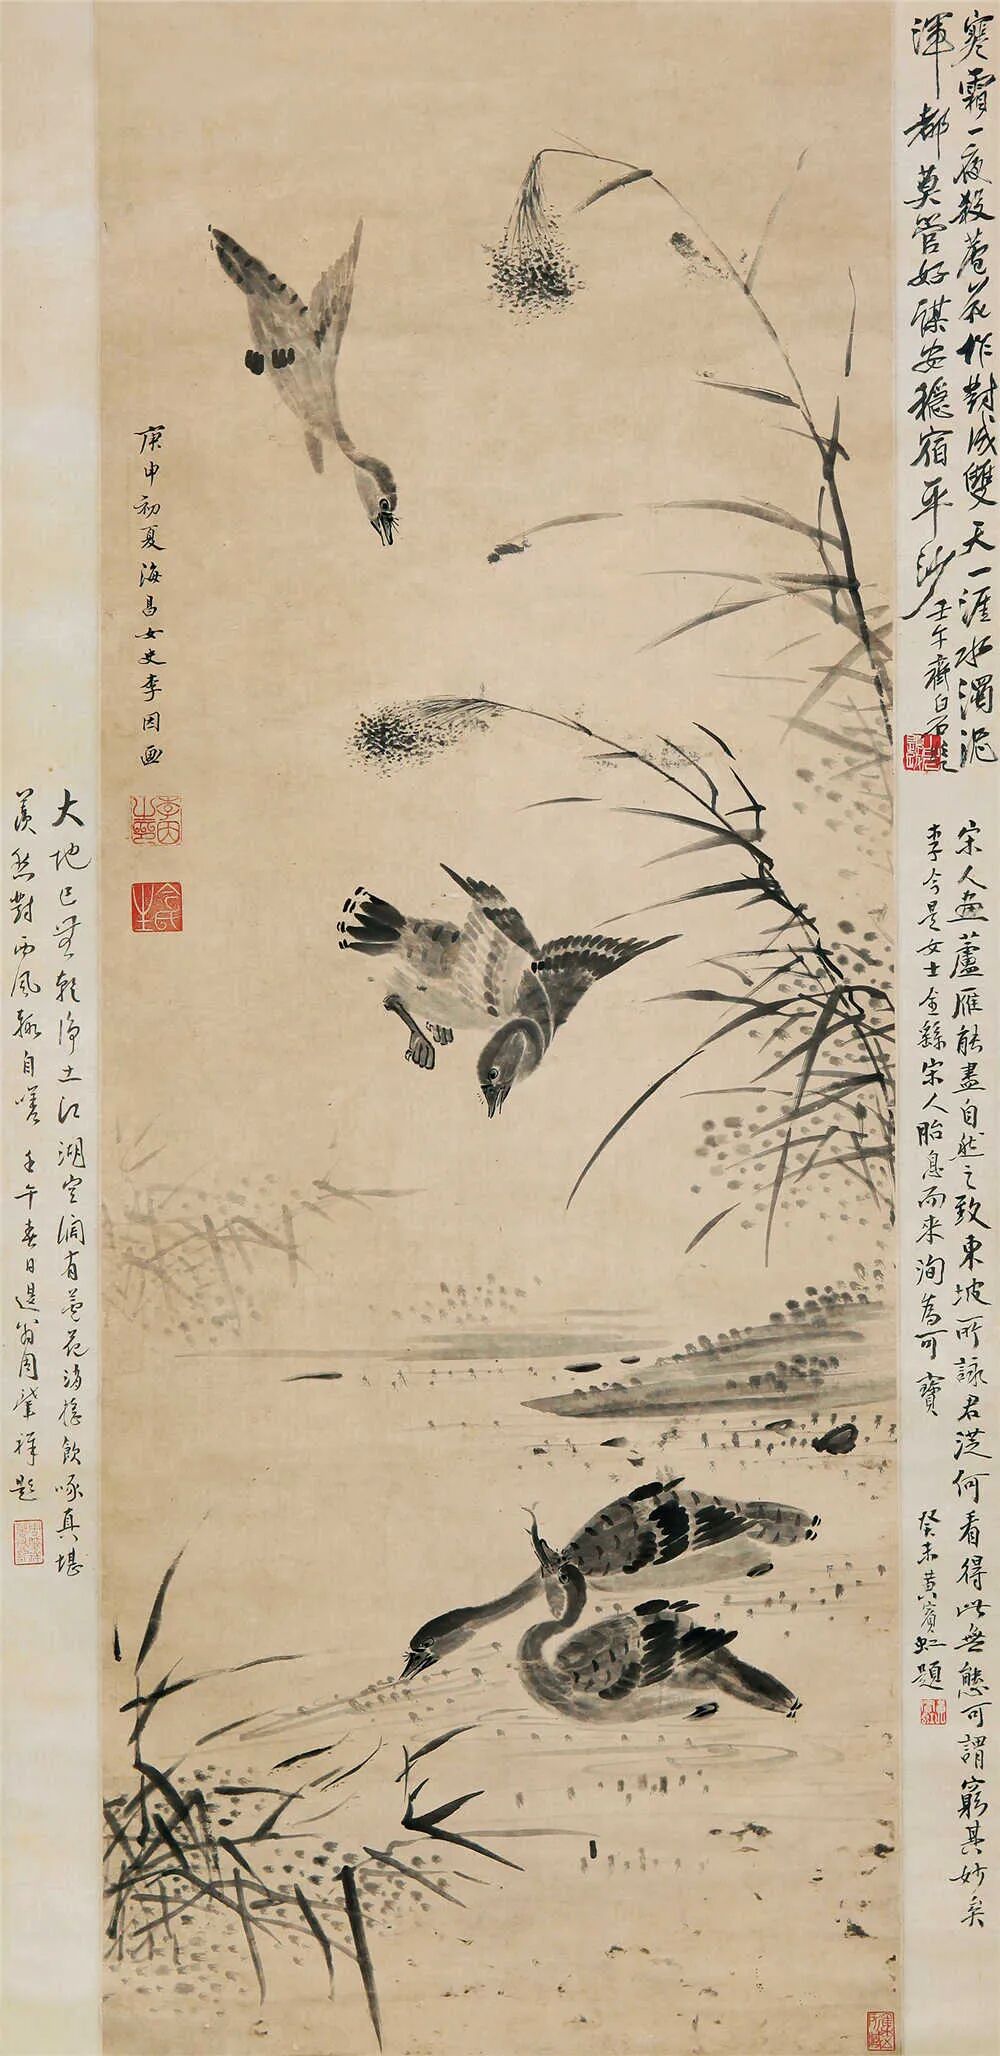 寒霜一夜殺蘆花作對成雙天一涯水濁泥
渾都莫管好謀安穩宿平沙
壬午齊白石題
宋人畫蘆雁能盡自然之致東坡所詠君從何看得此無態可謂窮其妙矣
李今是女士全繇宋人胎息而來洵為可寶
癸未黃賓虹題
庚申初夏海昌女史李因画
李因之印
今是氏
大地已無乾淨土江湖空闊有蘆花滿梳飲啄真堪
羨愁對西風祗自嗟
壬午春日退翁周肇祥題